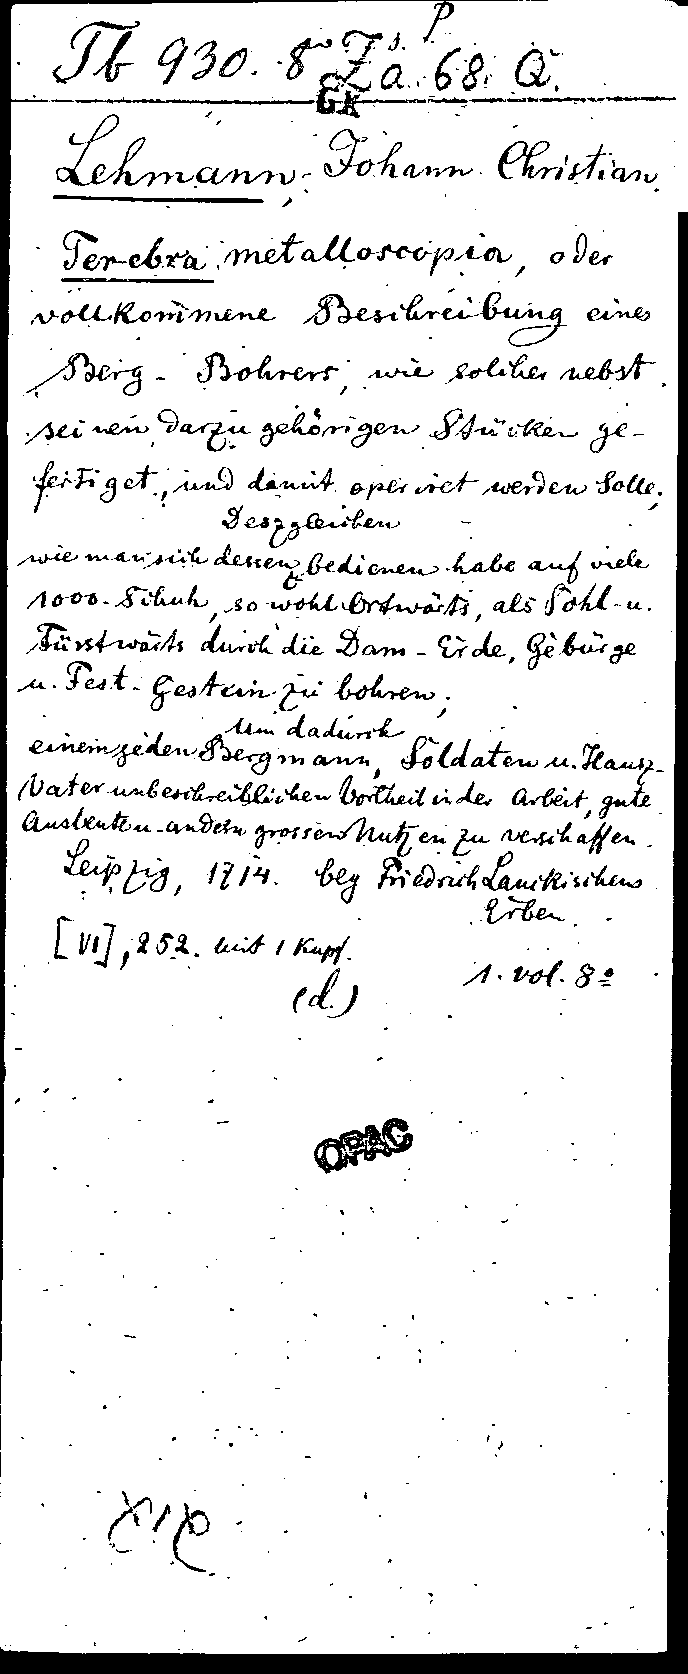 Tb 930. 8vo Za. 68. Q.
GK
Lehmann, Johann Christian.
Terebra metalloscopia, oder
vollkommene Beschreibung eines
Berg-Bohrers, wie solcher nebst
seinen darzu gehörigen Stücken ge-
fertiget, und damit operiret werden solle;
Deszgleichen
wie man sich dessen zu bedienen habe auf viele
1000. Schuh, so wohl Ortwärts, als Sohl- u.
Fürstwärts durch die Dam-Erde, Gebürge
u. Fest-Gestein zu bohren;
Um dadurch
einem jeden Bergmann, Soldaten u. Hausz-
Vater unbeschreiblichen Vortheil in der Arbeit, gute
Ausbeute u. andern grossen Nutzen zu verschaffen.
Leipzig, 1714. bey Friedrich Lanckischens
Erben.
[VI], 252. mit 1 Kupf.
1. vol. 8o
(d.)
OPAC